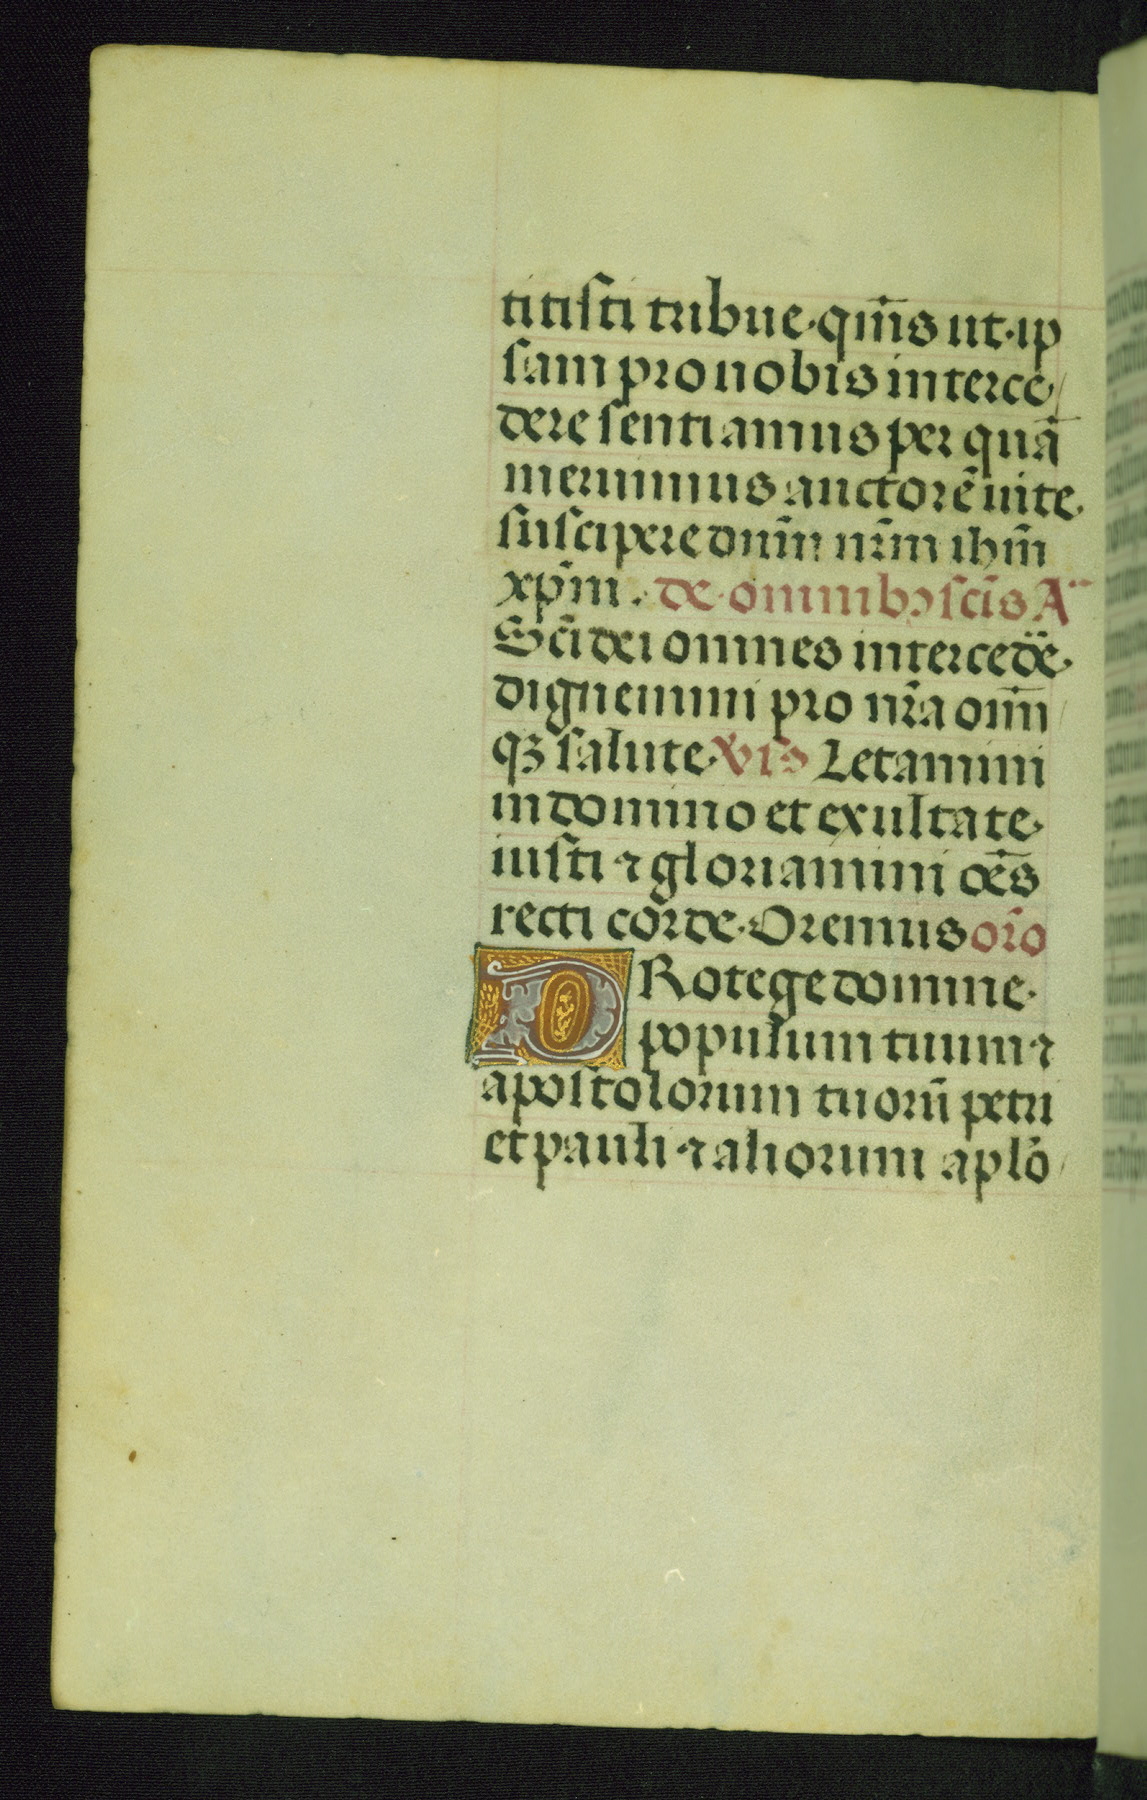 titisti tribue·qm̄s ut·ip
sam pro nobis interce/
dere sentiamus per quā
meruimus auctorē uite·
suscipere dn̄m nr̄m ihm̄
xp̄m. de omnibꝯ sc̄is A
Sc̄i dei omnes intercede·
dignemini pro nr̄a om̄i/
qꝫ salute·v̄s Letamini
in domino et exultate·
iusti ⁊ gloriamini oēs
recti corde·Oremus or̄o
PRotege domine·
populum tuum ⁊
apostolorum tuorū petri
et pauli ⁊ aliorum aplō/